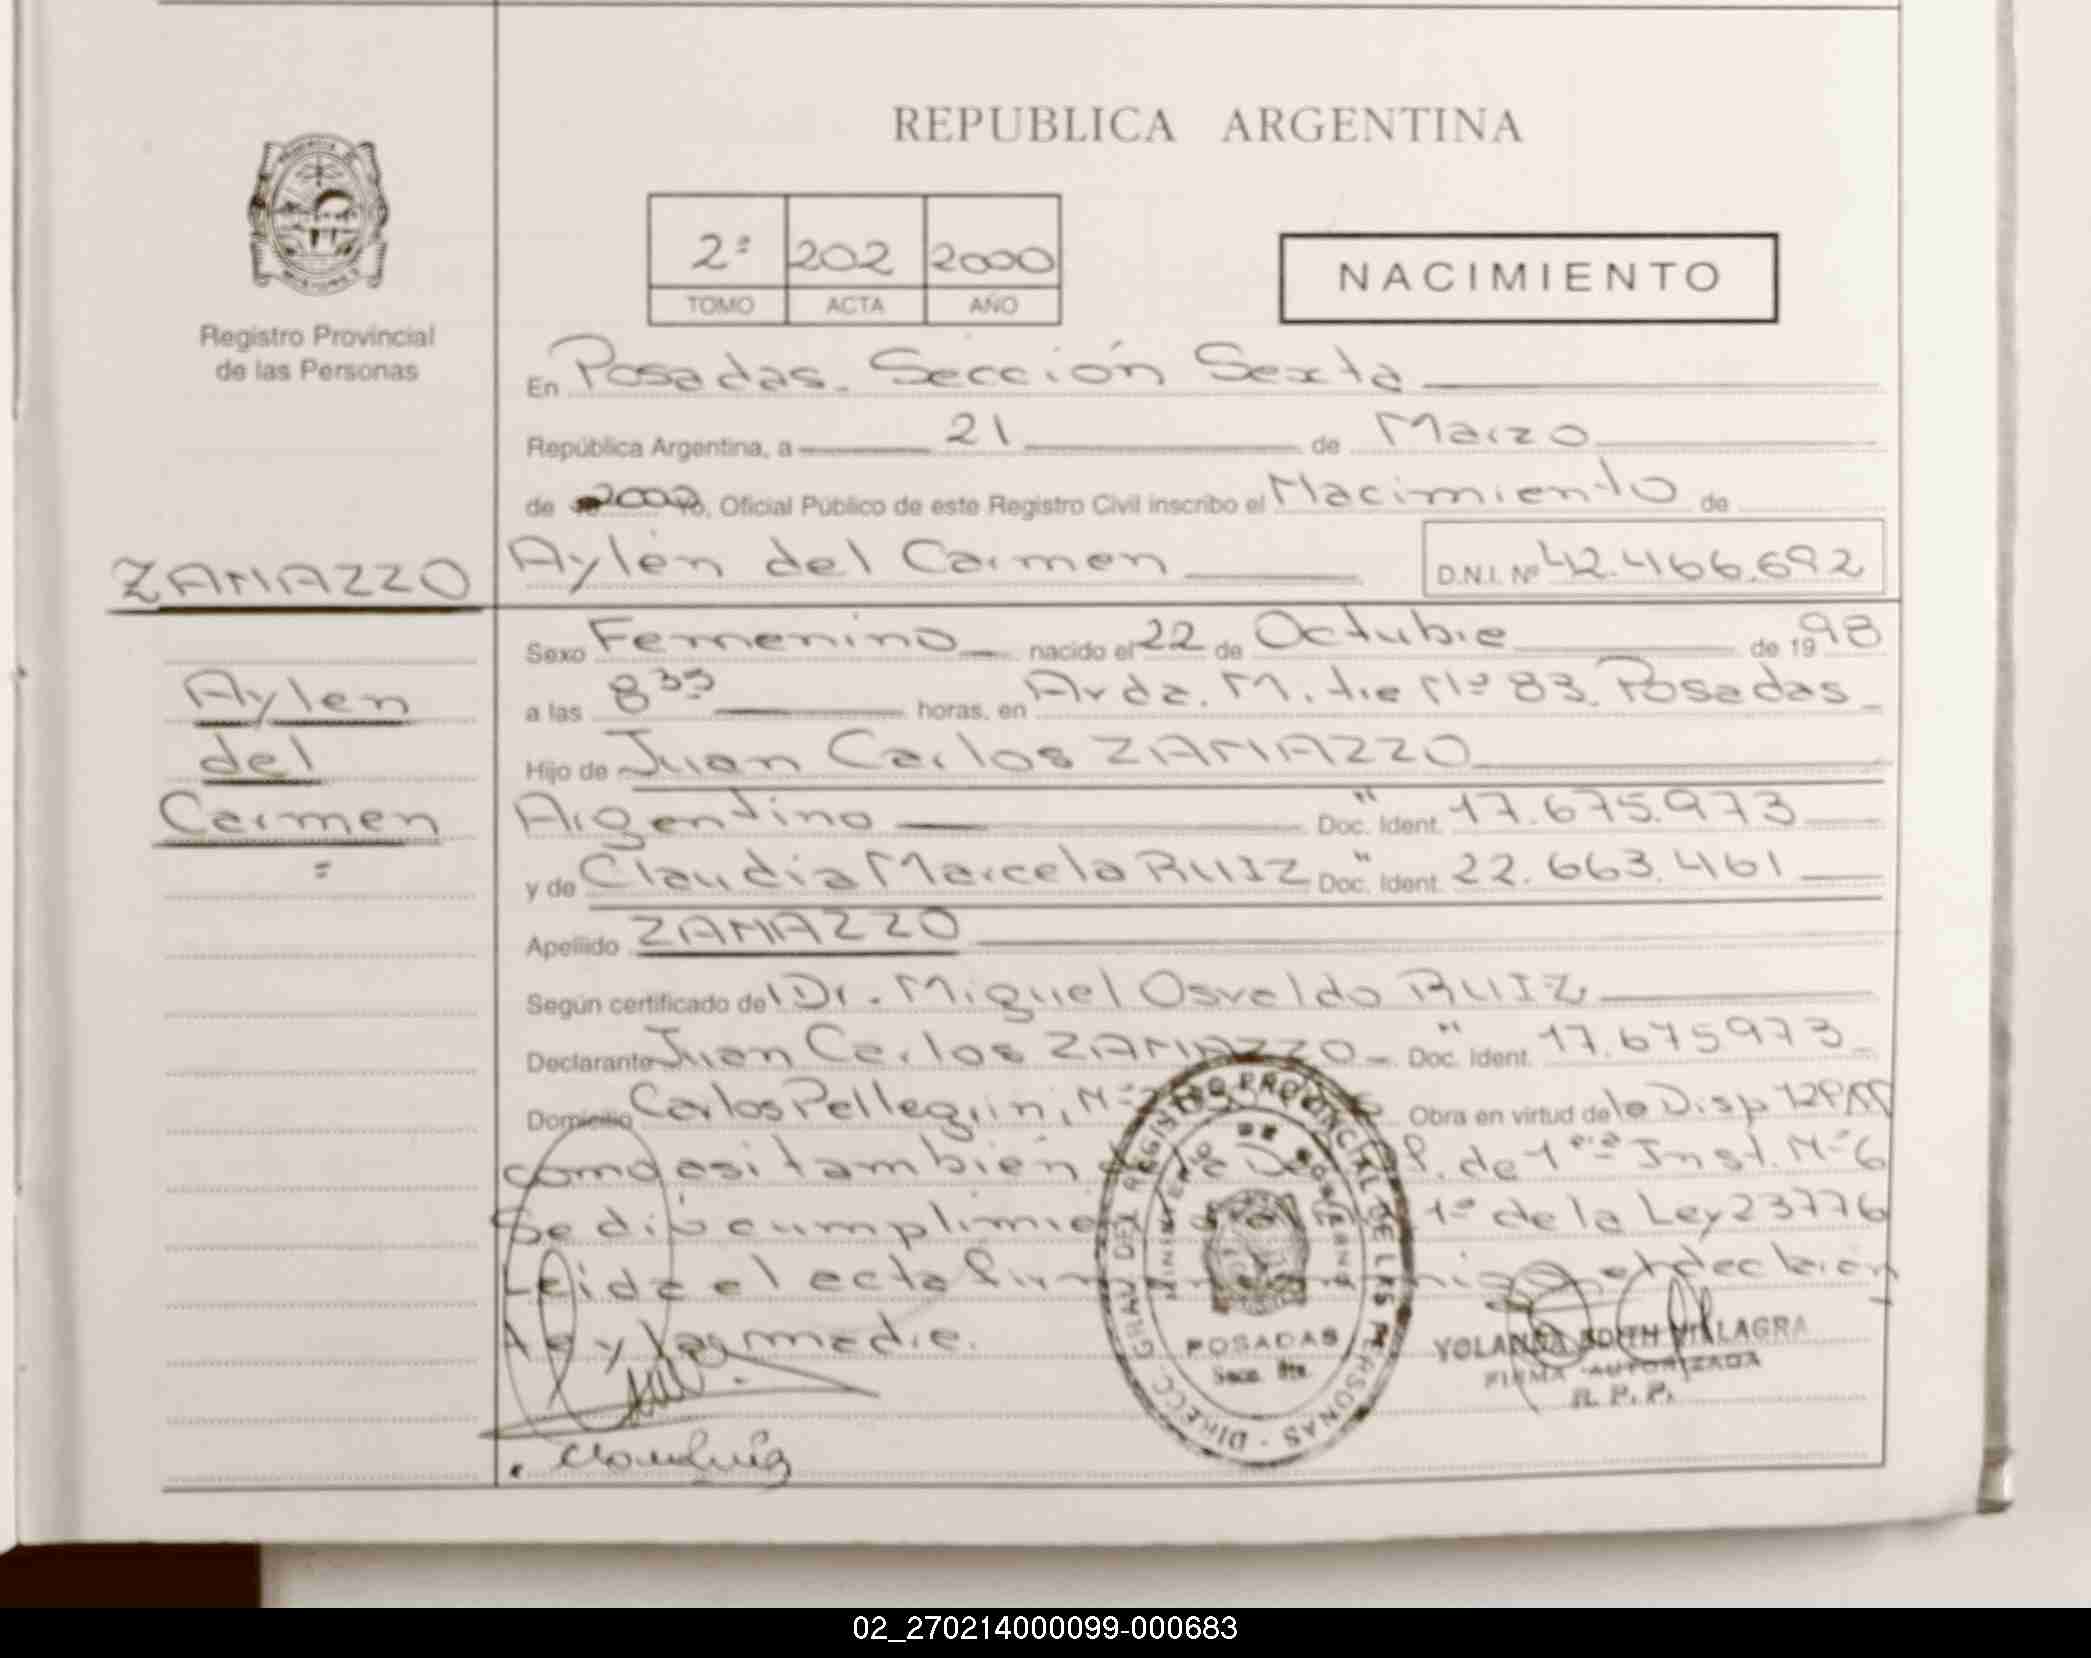 REPUBLICA ARGENTINA
2ª 202 2000
TOMO ACTA AÑO
NACIMIENTO
Registro Provincial
de las Personas
En Posadas. Sección Sexta
República Argentina, a 21 de Marzo
de 2000 Yo, Oficial Público de este Registro Civil inscribo el Nacimiento de
ZANAZZO
Aylén del Carmen D.N.I. Nº 42.466.692
Sexo Femenino nacido el 22 de Octubre de 1998
Aylen
del
Carmen
a las 8 35 horas, en Avda. Nº 83. Posadas
Hijo de Juan Carlos ZANAZZO
Argentino Doc. Ident. 17.675.973
y de Claudia Marcela RUIZ Doc. Ident. 22.663.461
Apellido ZANAZZO
Según certificado del Dr. Miguel Osvaldo RUIZ
Declarante Juan Carlos ZANAZZO Doc. Ident. 17.675973
Domicilio Carlos Pellegrini Nº Obra en virtud de la Disp
como asi también de 1era Inst. Nº 6
Se dió cumplimie 1º de la Ley 23776
Leida el acta
y la madre.
DIRECC. GRAL. DEL REGISTRO PROVINCIAL DE LAS PERSONAS
MINISTERIO DE GOBIERNO
POSADAS
Secc. 6ta.
YOLANDA EDITH VILLAGRA
FIRMA AUTORIZADA
R. P. P.
02_270214000099-000683